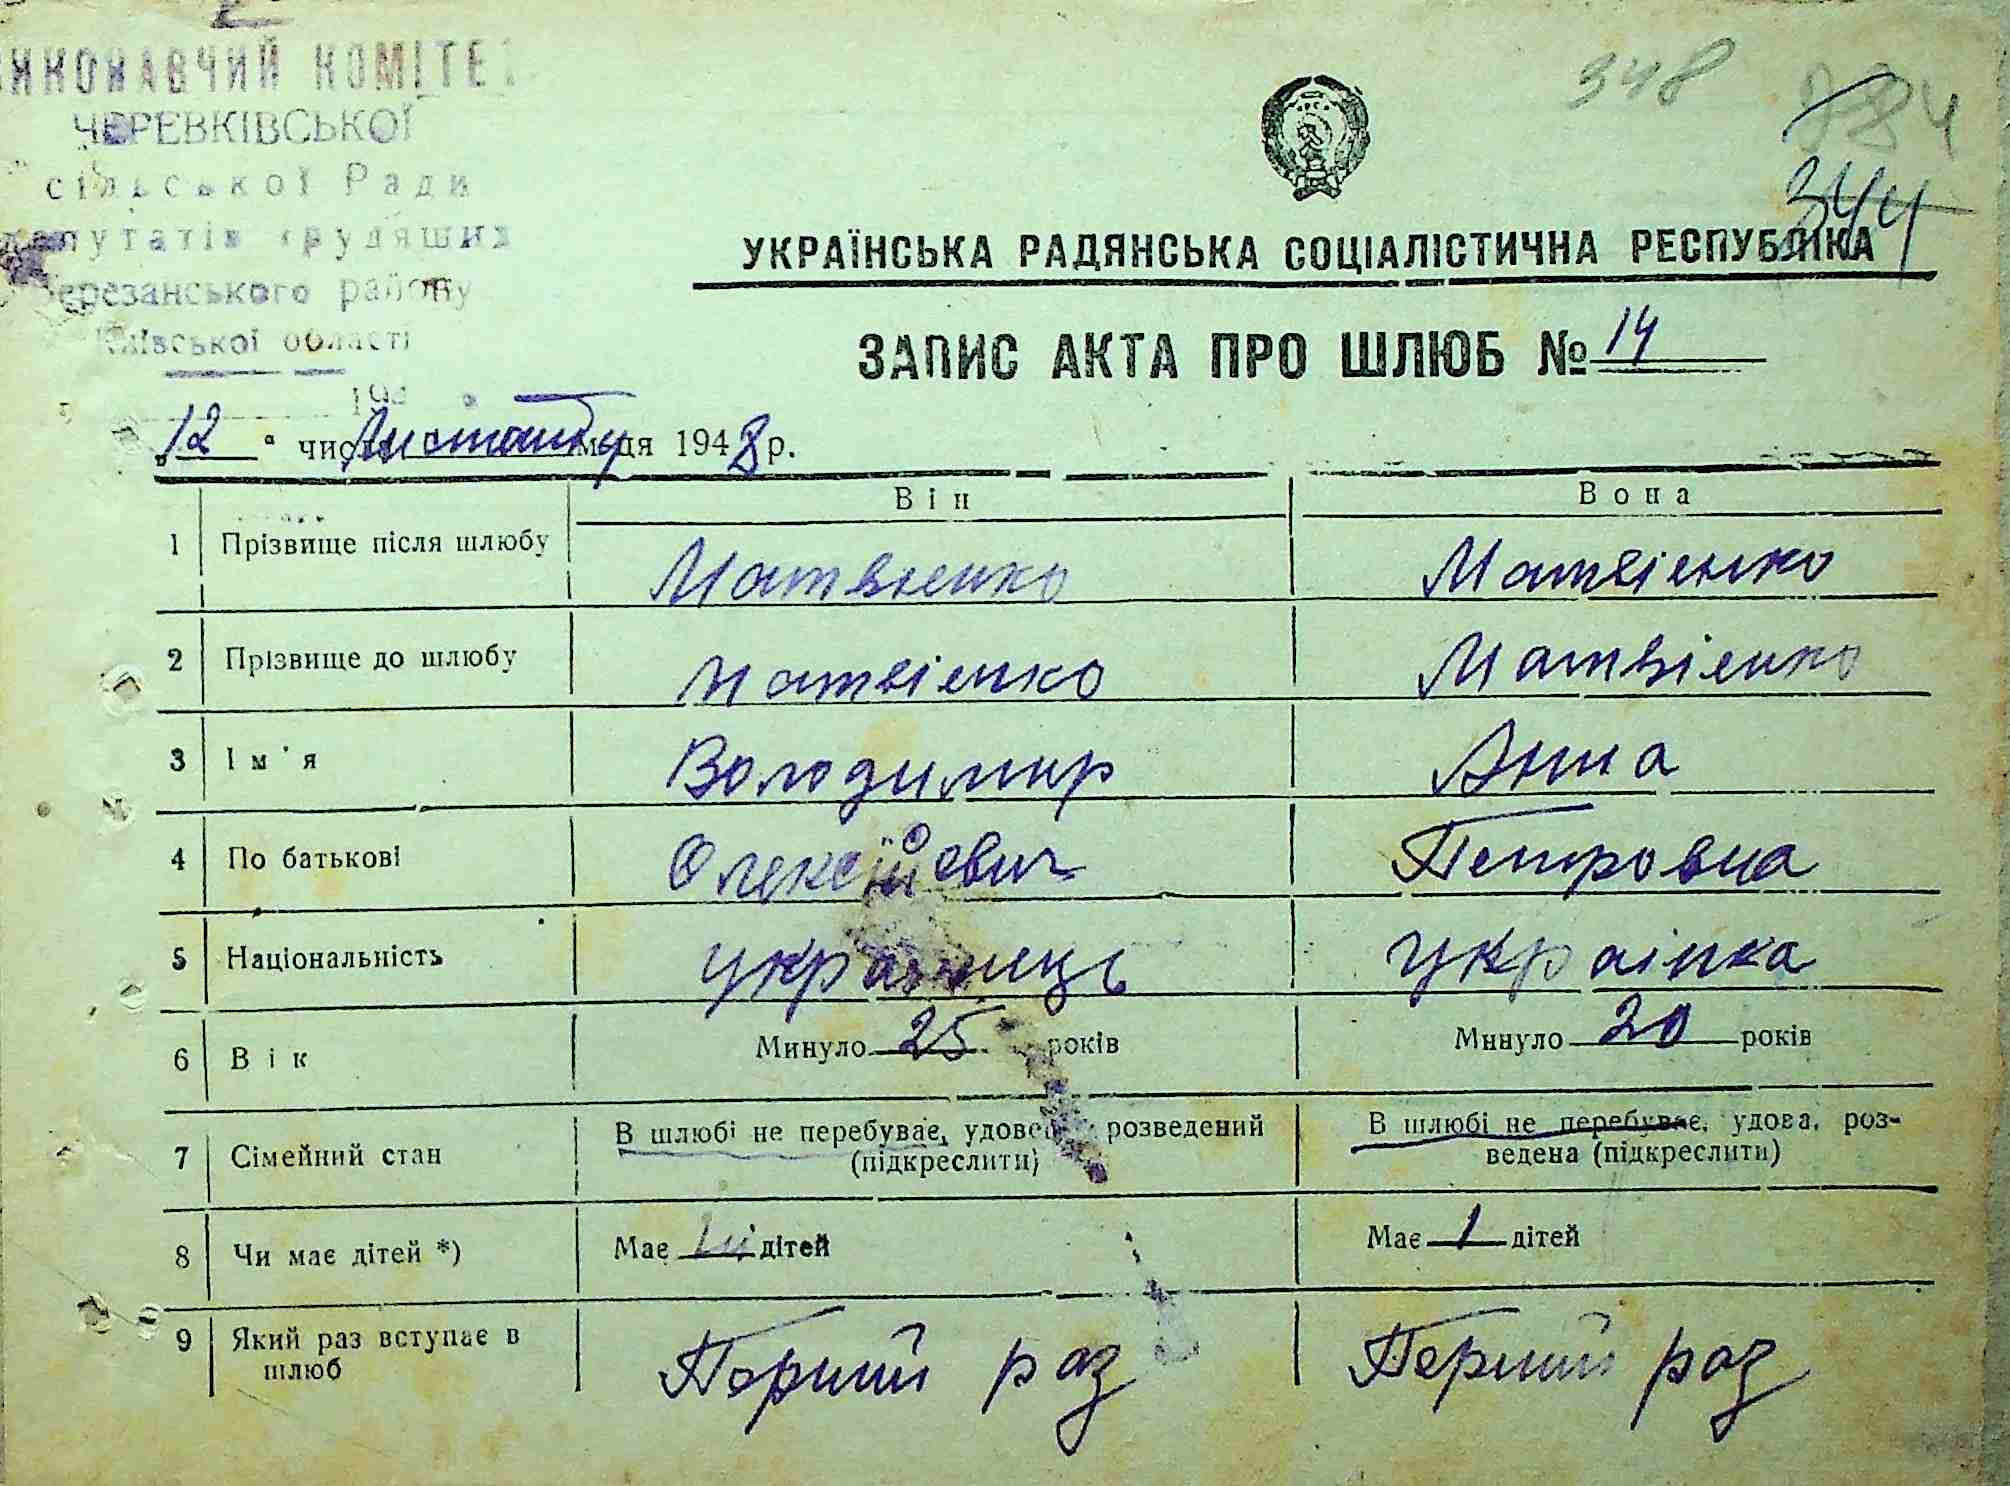 ВИКОНАВЧИЙ КОМІТЕТ
ЧЕРЕВКІВСЬКОЇ
сільської Ради
депутатів трудящих
Березанського району
Київської області
194
348
884
344
УКРАЇНСЬКА РАДЯНСЬКА СОЦІАЛІСТИЧНА РЕСПУБЛІКА
ЗАПИС АКТА ПРО ШЛЮБ № 14
„12“ числа Листопаду м-ця 1948 р.
Він Вона
1 Прізвище після шлюбу Матвієнко Матвієнко
2 Прізвище до шлюбу Матвієнко Матвієнко
3 Ім'я Володимир Анна
4 По батькові Олексійович Петровна
5 Національність українець українка
6 Вік Минуло 25 років Минуло 20 років
7 Сімейний стан В шлюбі не перебуває, удовець, розведений (підкреслити) В шлюбі не перебуває, удова, роз-
ведена (підкреслити)
8 Чи має дітей *) Має дітей Має 1 дітей
9 Який раз вступає в шлюб Перший раз Перший раз